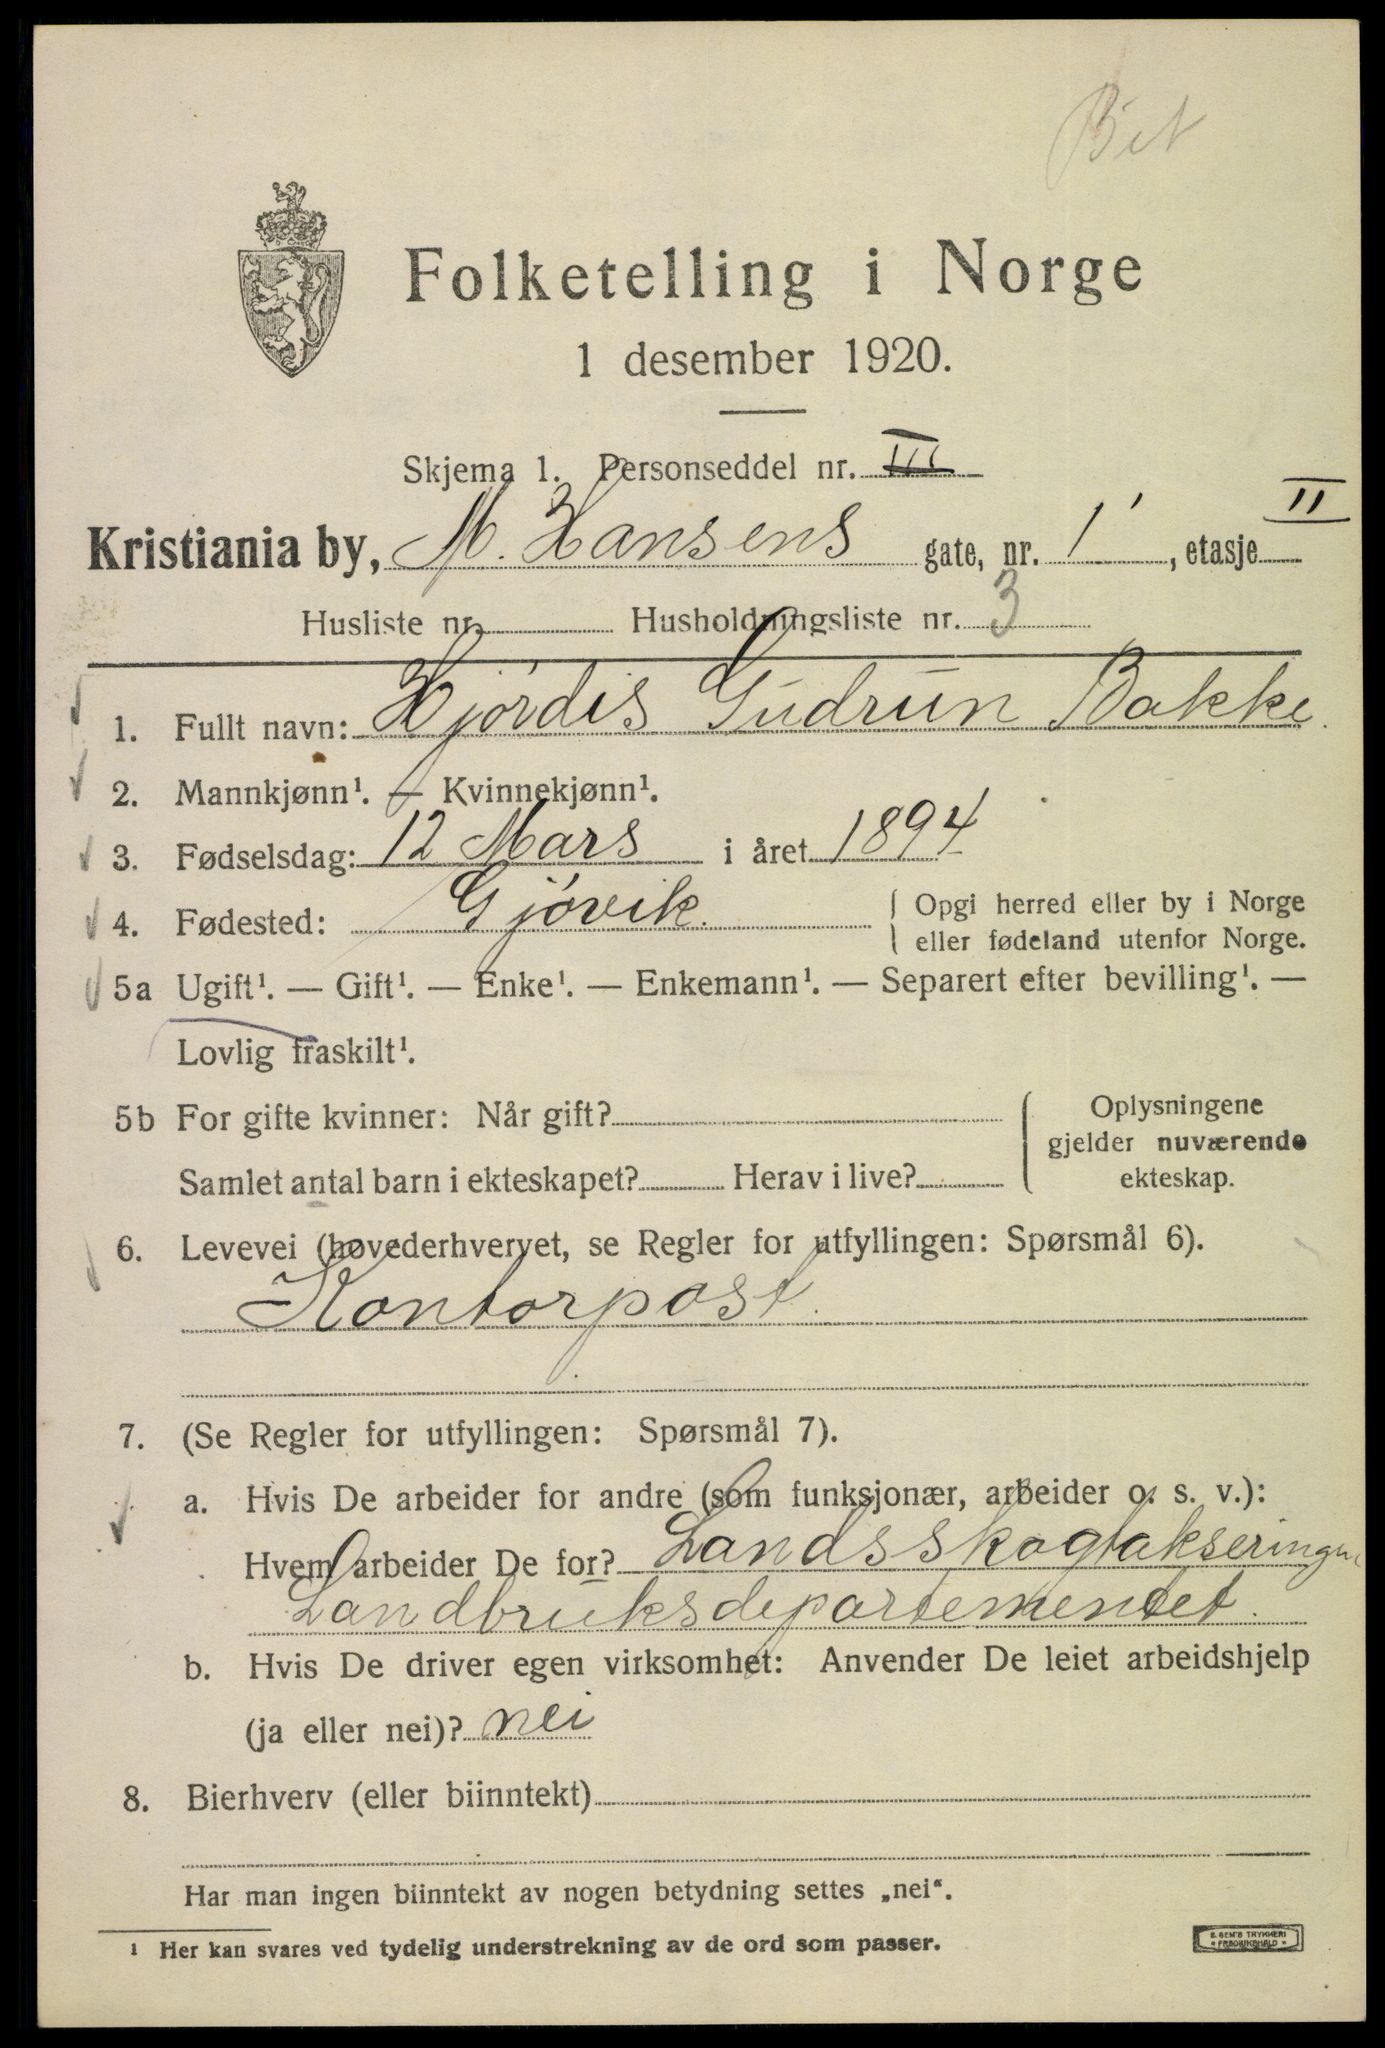 Bet
Folketelling i Norge
1 desember 1920.
Skjema 1. Personseddel nr. III
Kristiania by, M. Hansens gate, nr. 1, etasje II
Husliste nr. Husholdningsliste nr. 3
1. Fullt navn: Hjørdis Gudrun Bakke.
2. Mannkjønn¹. — Kvinnekjønn¹.
3. Fødselsdag: 12 Mars i året 1894
4. Fødested: Gjøvik. Opgi herred eller by i Norge
eller fødeland utenfor Norge.
5a Ugift¹. — Gift¹. — Enke¹. — Enkemann¹. — Separert efter bevilling¹. —
Lovlig fraskilt¹.
5b For gifte kvinner: Når gift? Oplysningene
gjelder nuværende
Samlet antal barn i ekteskapet? Herav i live? ekteskap.
6. Levevei (hovederhvervet, se Regler for utfyllingen: Spørsmål 6).
Kontorpost.
7. (Se Regler for utfyllingen: Spørsmål 7).
a. Hvis De arbeider for andre (som funksjonær, arbeider o. s. v.):
Hvem arbeider De for? Landsskogtakseringen
Landbruksdepartementet.
b. Hvis De driver egen virksomhet: Anvender De leiet arbeidshjelp
(ja eller nei)? nei
8. Bierhverv (eller biinntekt)
Har man ingen biinntekt av nogen betydning settes „nei“.
¹ Her kan svares ved tydelig understrekning av de ord som passer.
E. SEM'S TRYKKERI
* FREDRIKSHALD *